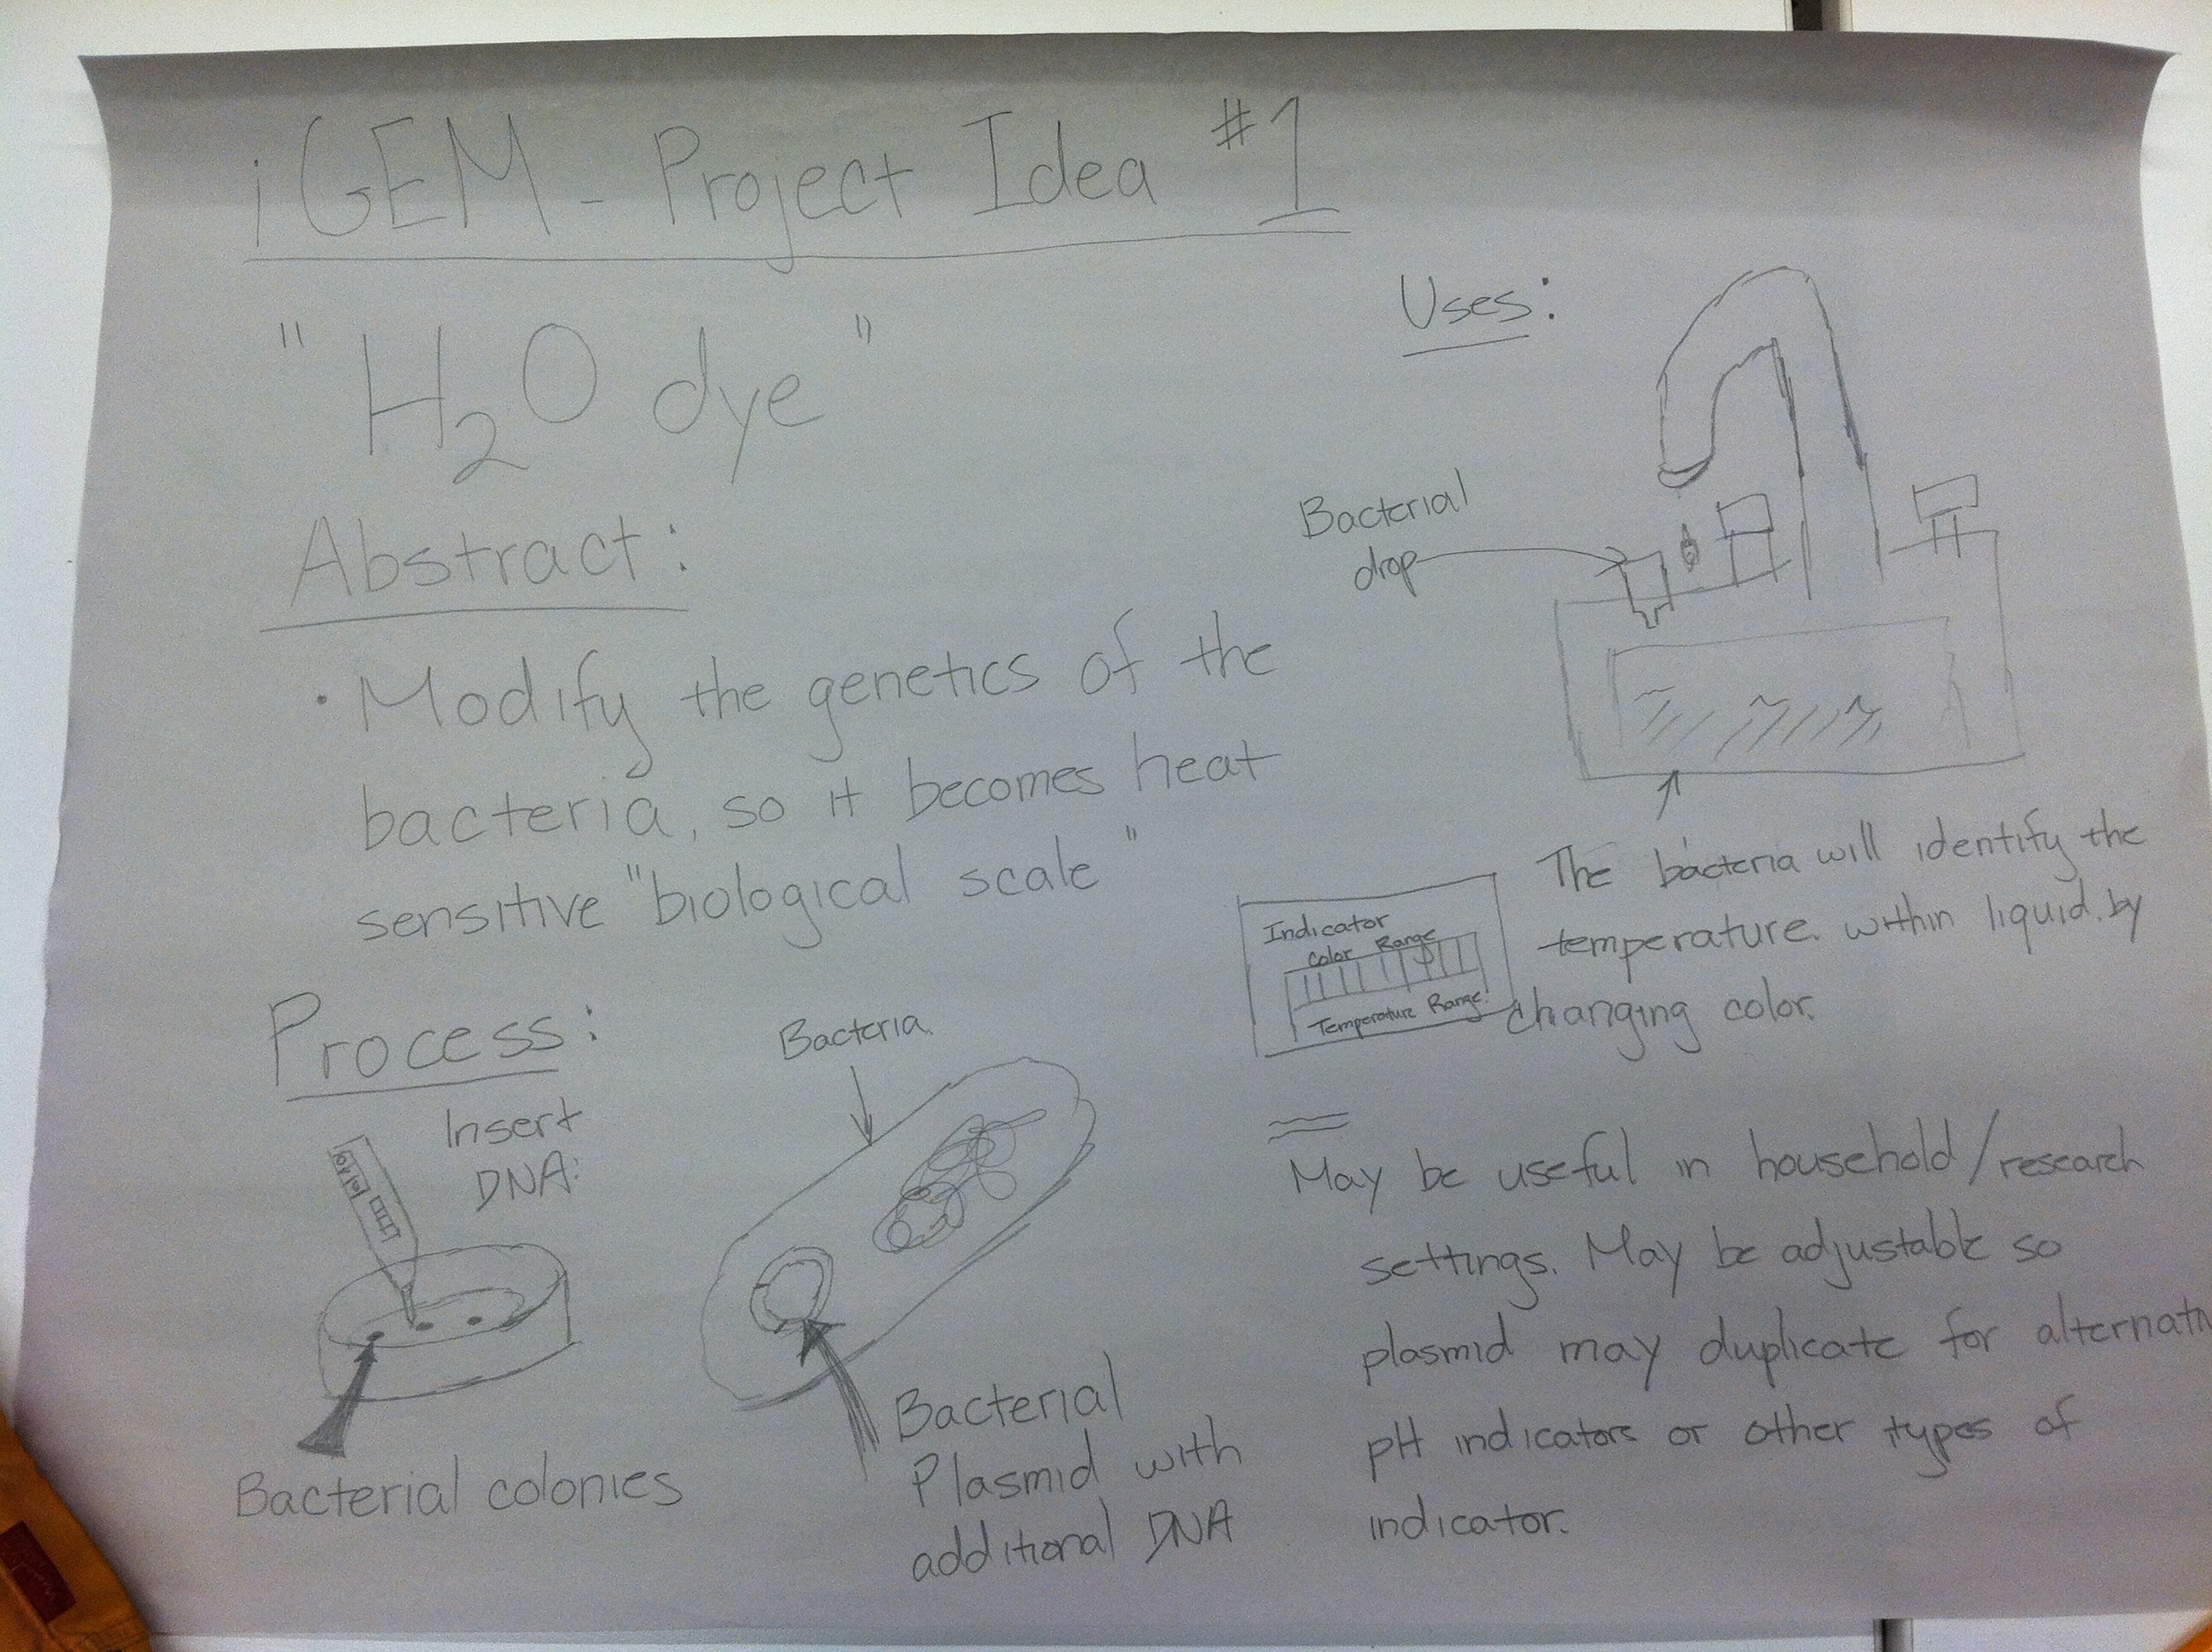 iGEM - Project Idea #1
"H2O dye"
Abstract:
· Modify the genetics of the
bacteria, so it becomes heat
sensitive "biological scale"
Process:
Insert
DNA:
Bacterial colonies
Bacteria
Bacterial
Plasmid with
additional DNA
Uses:
Bacterial
drop
The bacteria will identify the
temperature. within liquid. by
changing color.
Indicator
Color Range
Temperature Range
May be useful in household/research
settings. May be adjustable so
plasmid may duplicate for alternati
pH indicators or other types of
indicator.